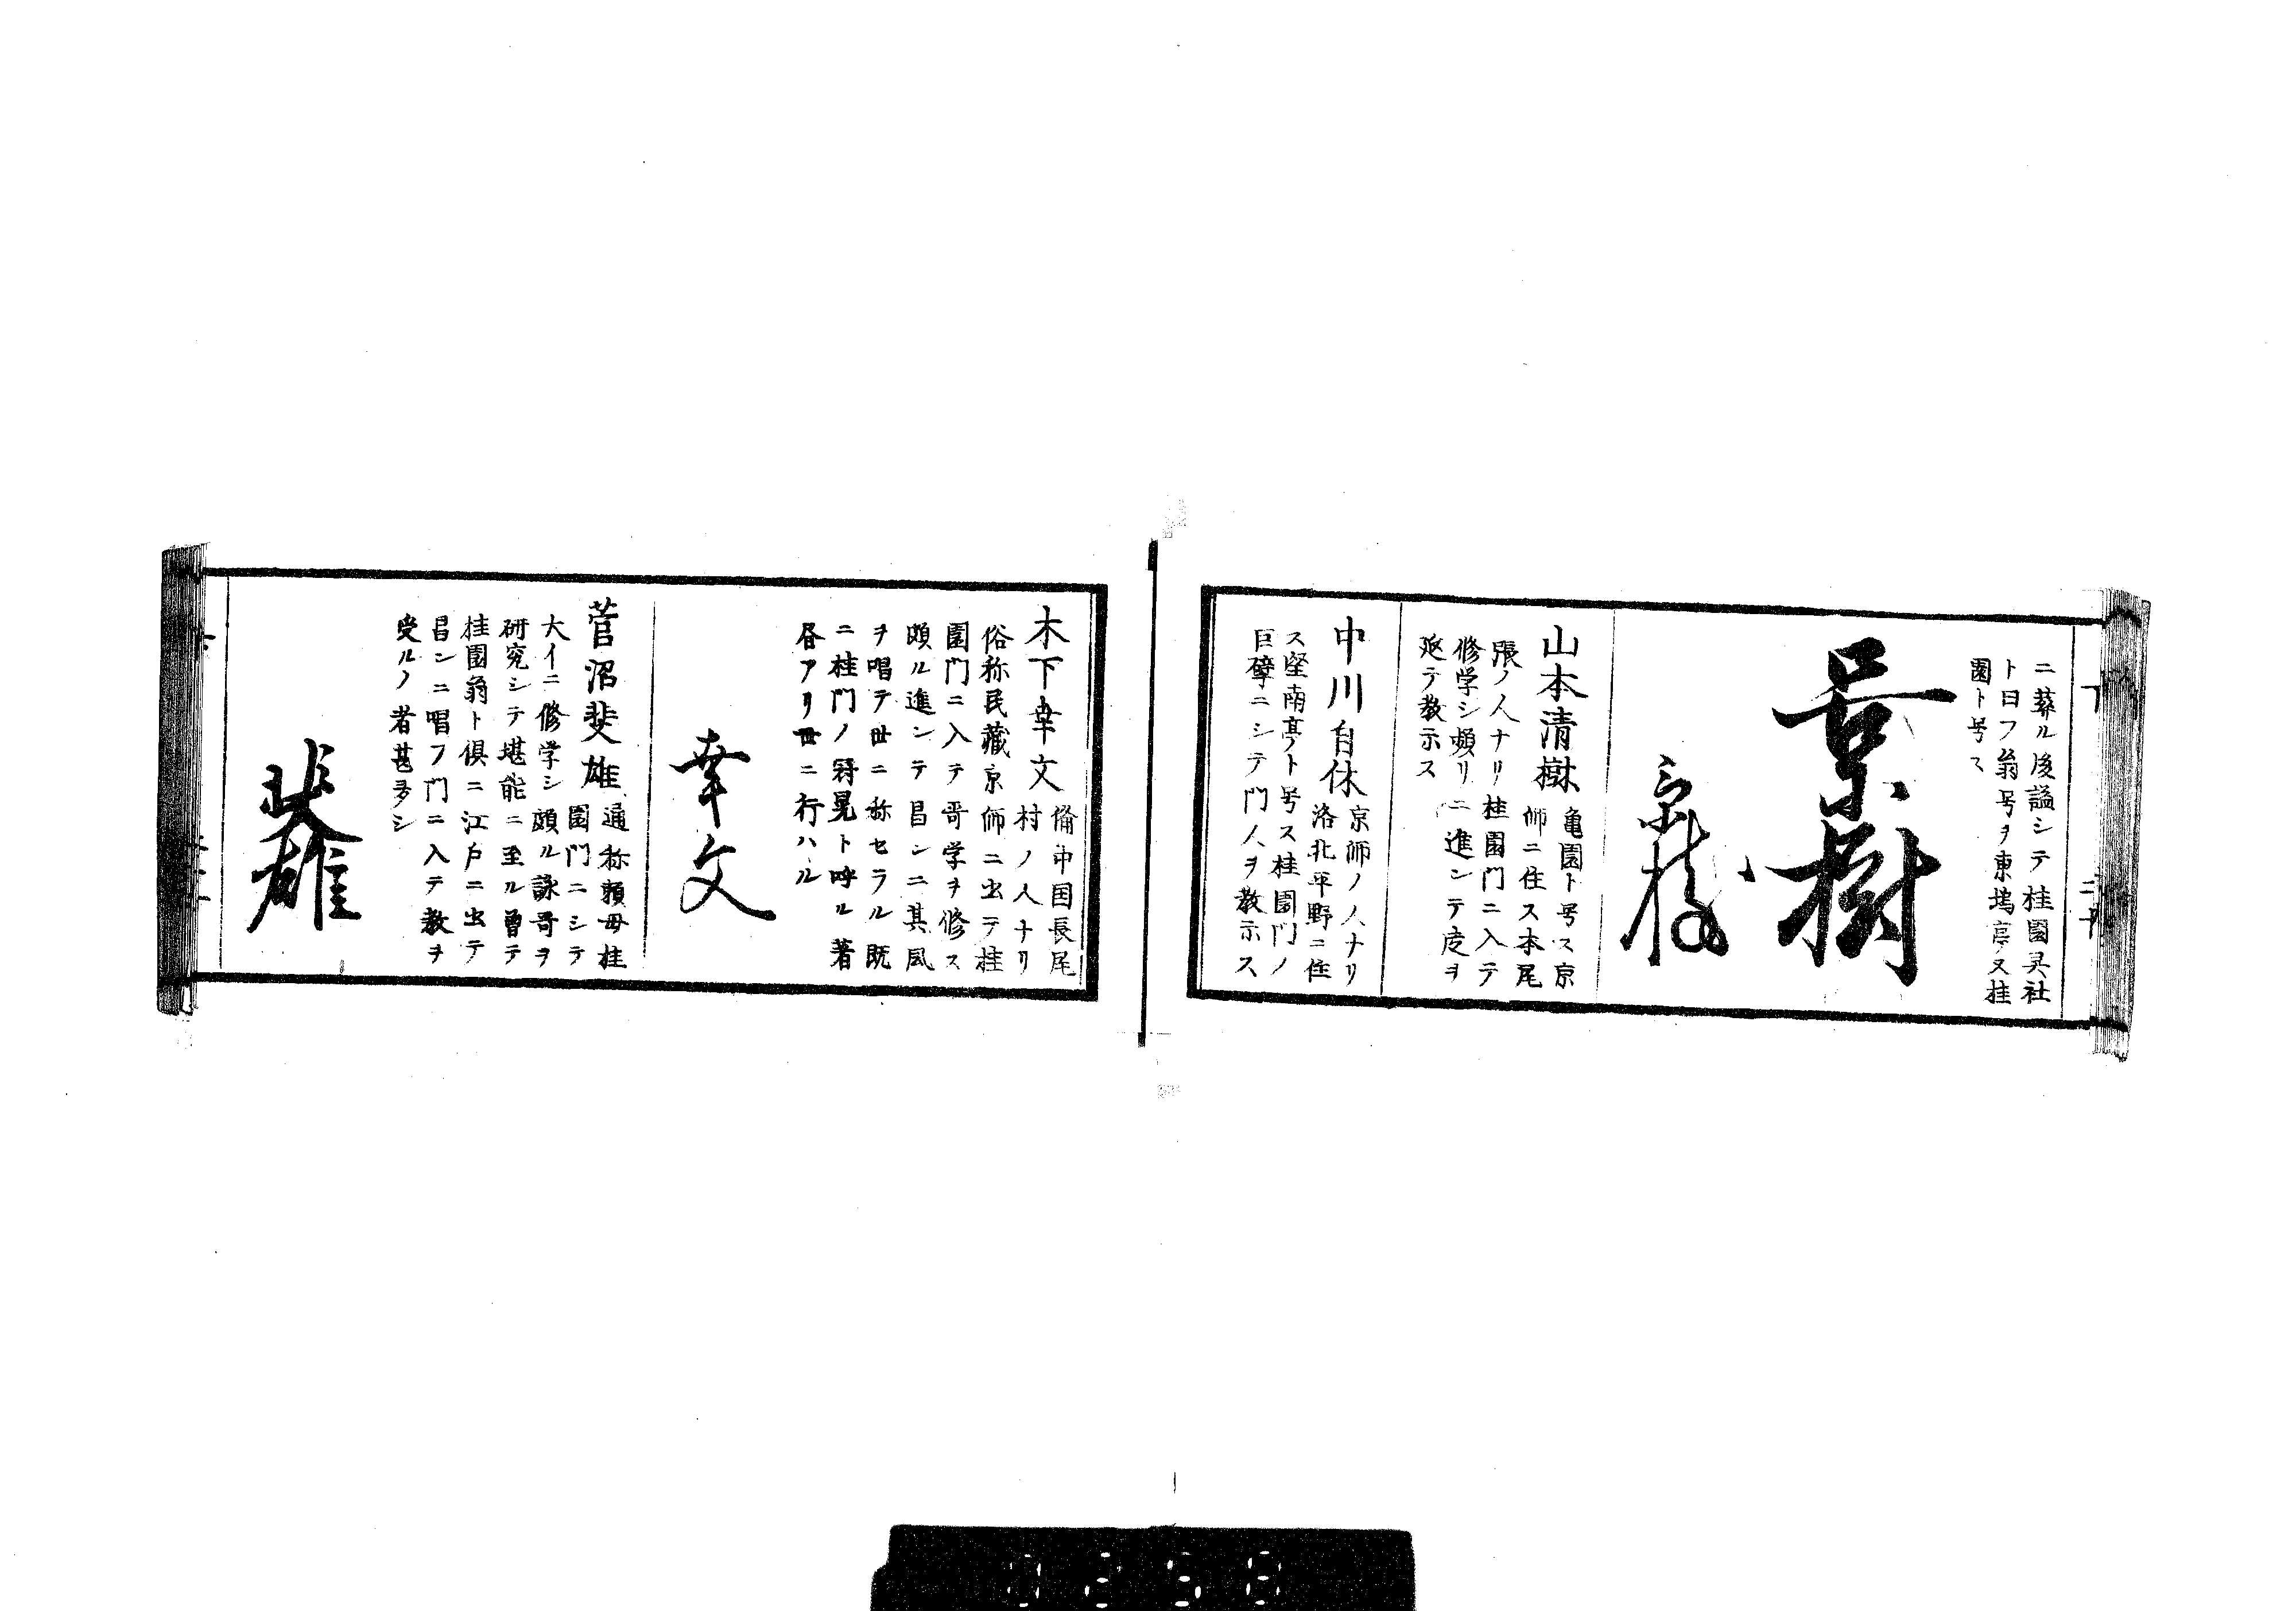 ニ葬ル後謚シテ桂園灵社
ト曰フ翁号ヲ東塢亭又桂
園ト号ス
景樹
景樹
山本清樹
亀園ト号ス京
師ニ住ス本尾
張ノ人ナリ桂園門ニ入テ
修学シ頻リニ進ンテ度ヲ
延テ教示ス
中川自休
京師ノ人ナリ
洛北平野ニ住
ス堅南亭ト号ス桂園門ノ
巨擘ニシテ門人ヲ教示ス
木下幸文
備中国長尾
村ノ人ナリ
俗称民藏京師ニ出テ桂
園門ニ入テ哥学ヲ修ス
頗ル進ンテ昌ンニ其風
ヲ唱テ世ニ称セラル既
ニ桂門ノ冠ト呼ル著
書アリ世ニ行ハル
幸文
菅沼斐雄
通称頼母桂
園門ニシテ
大イニ修学シ頗ル詠哥ヲ
研究シテ堪能ニ至ル曽テ
桂園翁ト倶ニ江戸ニ出テ
昌ンニ唱フ門ニ入テ教ヲ
受ルノ者甚多シ
斐雄